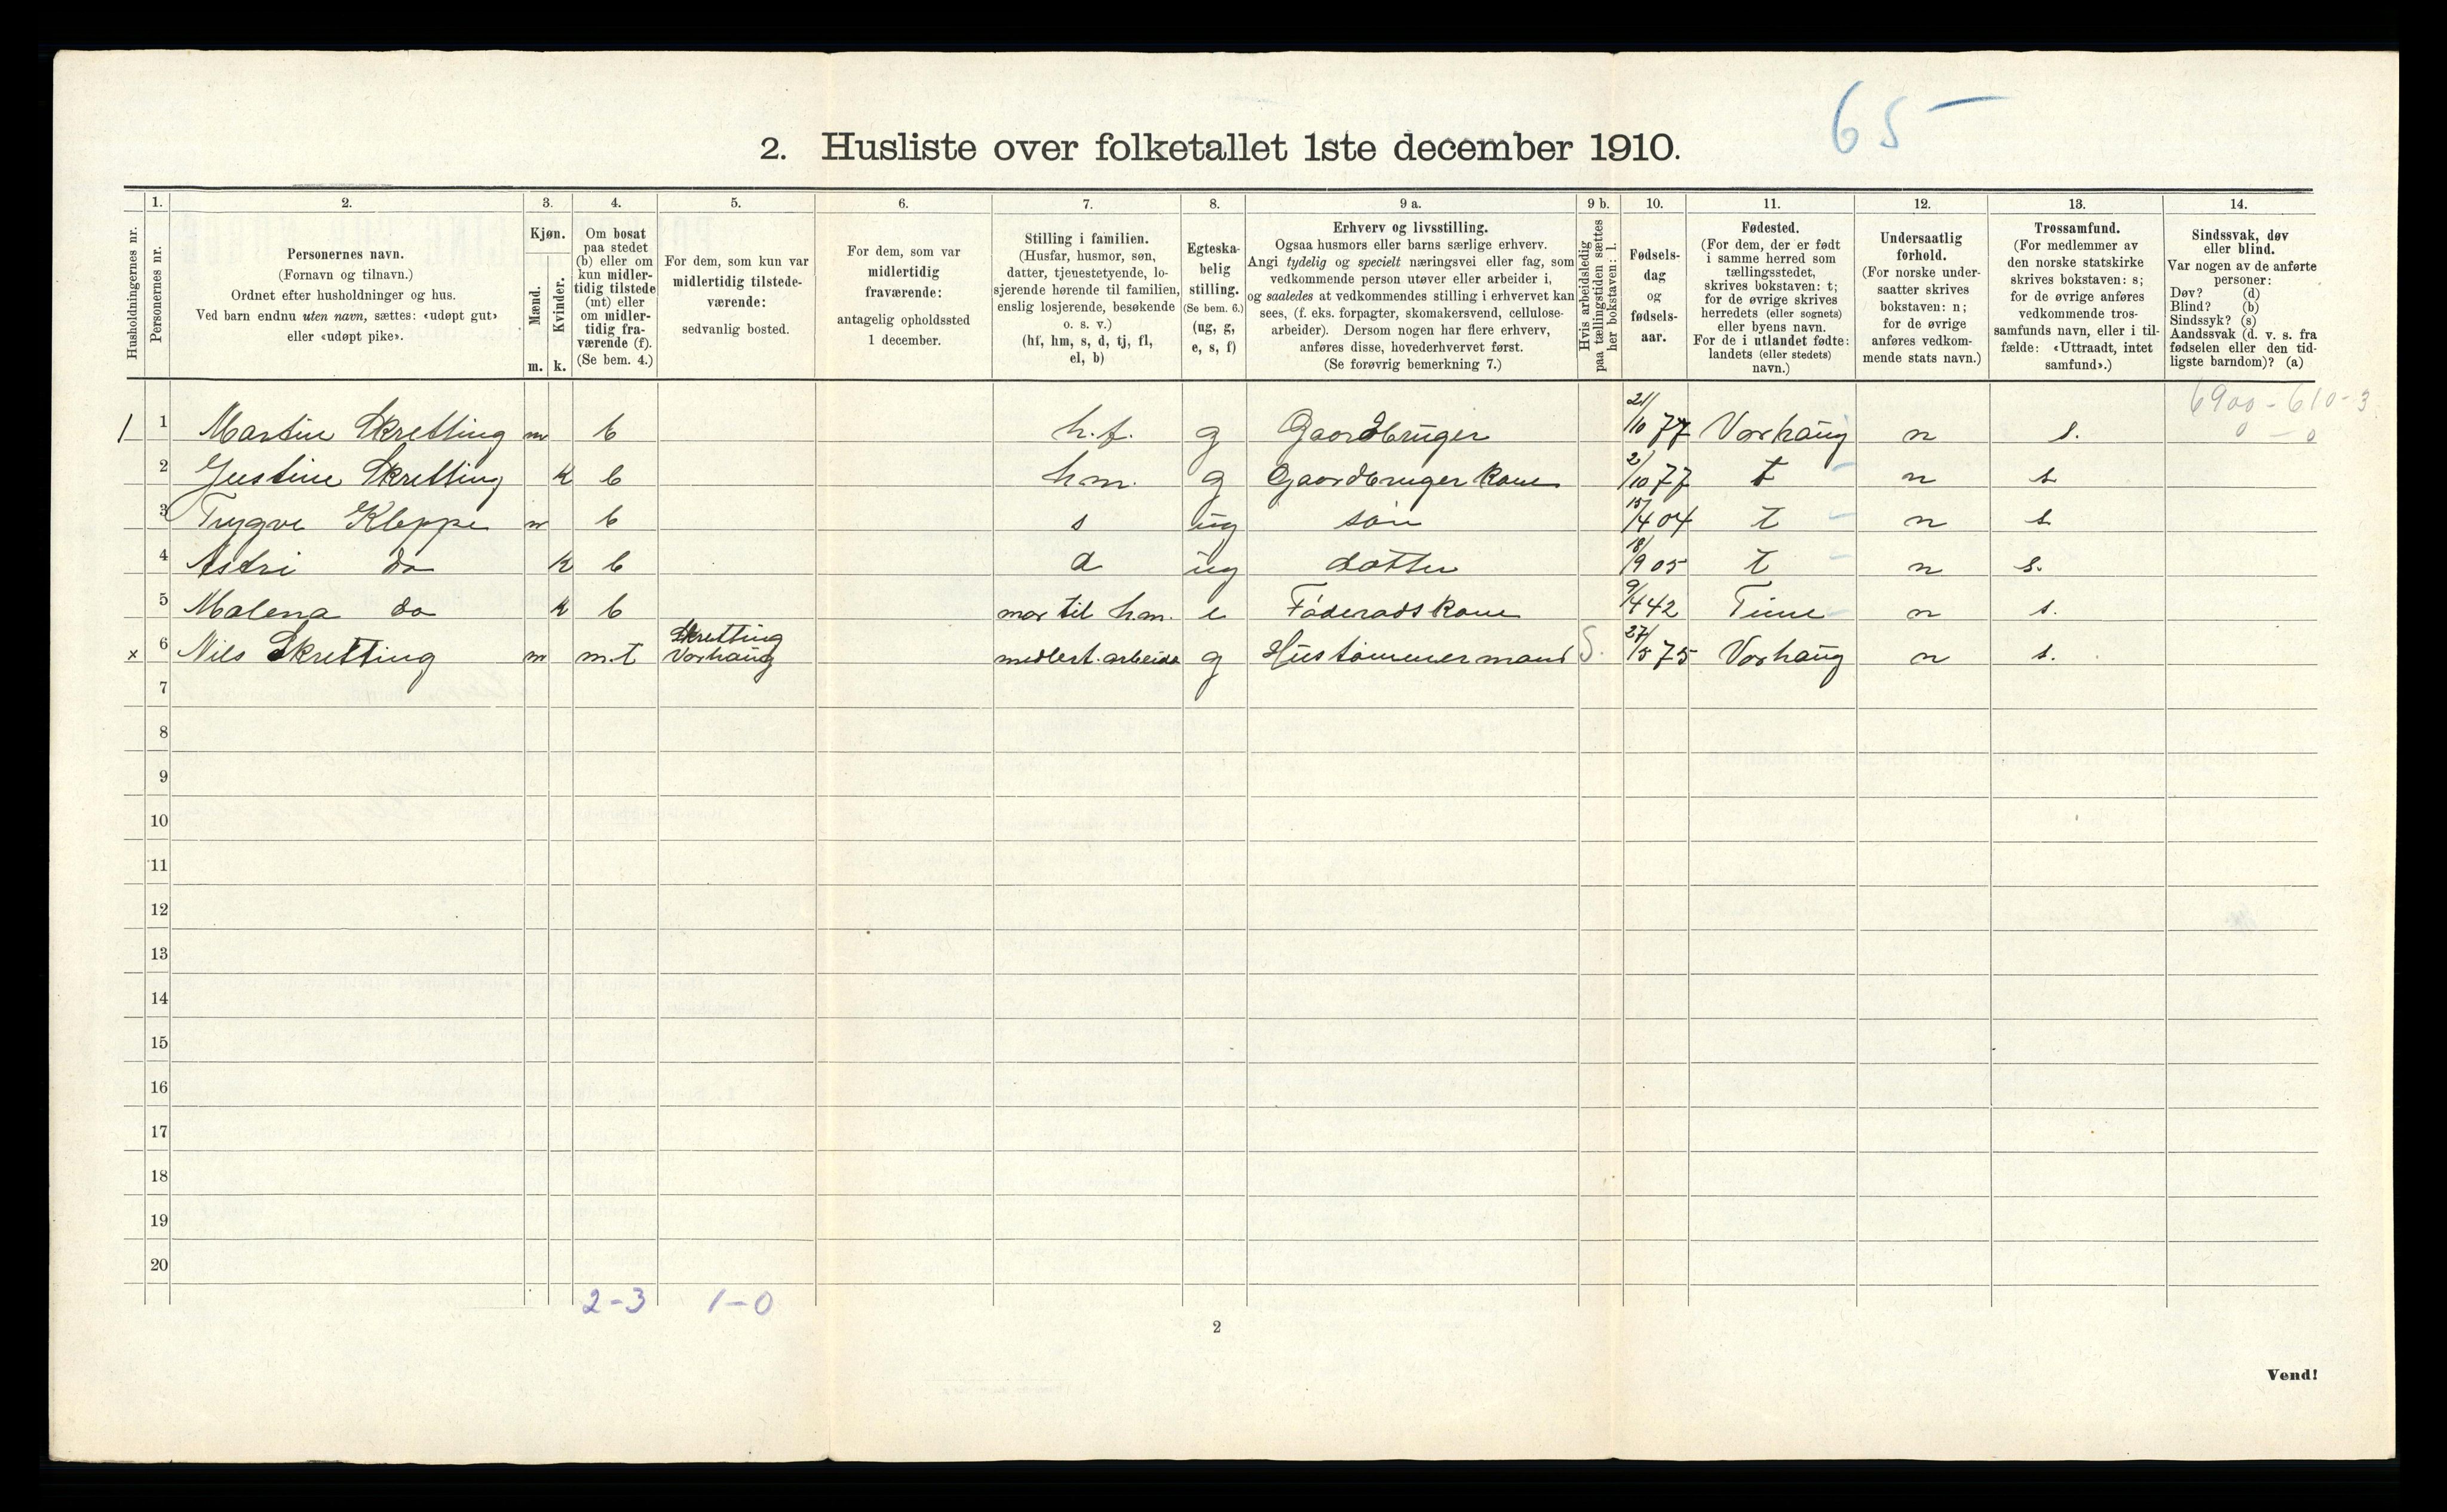 65
2. Husliste over folketallet 1ste december 1910.
1. 2. 3. 4. 5. 6. 7. 8. 9 a. 9 b. 10. 11. 12. 13. 14.
Husholdningernes nr.
Personernes nr.
Personernes navn.
(Fornavn og tilnavn.)
Ordnet efter husholdninger og hus.
Ved barn endnu uten navn, sættes: «udøpt gut»
eller «udøpt pike».
Kjøn.
Mænd.
Kvinder.
m. k.
Om bosat
paa stedet
(b) eller om
kun midler-
tidig tilstede
(mt) eller
om midler-
tidig fra-
værende (f).
(Se bem. 4.)
For dem, som kun var
midlertidig tilstede-
værende:
sedvanlig bosted.
For dem, som var
midlertidig
fraværende:
antagelig opholdssted
1 december.
Stilling i familien.
(Husfar, husmor, søn,
datter, tjenestetyende, lo-
sjerende hørende til familien,
enslig losjerende, besøkende
o. s. v.)
(hf, hm, s, d, tj, fl,
el, b)
Egteska-
belig
stilling.
(Se bem. 6.)
(ug, g,
e, s, f)
Erhverv og livsstilling.
Ogsaa husmors eller barns særlige erhverv.
Angi tydelig og specielt næringsvei eller fag, som
vedkommende person utøver eller arbeider i,
og saaledes at vedkommendes stilling i erhvervet kan
sees, (f. eks. forpagter, skomakersvend, cellulose-
arbeider). Dersom nogen har flere erhverv,
anføres disse, hovederhvervet først.
(Se forøvrig bemerkning 7.)
Hvis arbeidsledig
paa tællingstiden sættes
her bokstaven: l.
Fødsels-
dag
og
fødsels-
aar.
Fødested.
(For dem, der er født
i samme herred som
tællingsstedet,
skrives bokstaven: t;
for de øvrige skrives
herredets (eller sognets)
eller byens navn.
For de i utlandet fødte:
landets (eller stedets)
navn.)
Undersaatlig
forhold.
(For norske under-
saatter skrives
bokstaven: n;
for de øvrige
anføres vedkom-
mende stats navn.)
Trossamfund.
(For medlemmer av
den norske statskirke
skrives bokstaven: s;
for de øvrige anføres
vedkommende tros-
samfunds navn, eller i til-
fælde: «Uttraadt, intet
samfund».)
Sindssvak, døv
eller blind.
Var nogen av de anførte
personer:
Døv? (d)
Blind? (b)
Sindssyk? (s)
Aandssvak (d. v. s. fra
fødselen eller den tid-
ligste barndom)? (a)
6900-610-3
0 - 0
1 1 Martin Skretting m b h.f. g Gaardbruger 21/10 77 Varhaug n s.
2 Justine Skretting k b hm. g Gaardbruger kone 2/10 77 t n s
3 Trygve Kleppe m b s ug søn 15/4 04 t n s
4 Astri do k b d ug datter 18/9 05 t n s.
5 Malena do k b mor til hm. e Føderadskone 9/4 42 Time n s.
x 6 Nils Skretting m m.t Skretting Varhaug medlert. arbeide g Hustømmermand S. 27/5 75 Varhaug n s.
7
8
9
10
11
12
13
14
15
16
17
18
19
20
2-3 1-0
2
Vend!